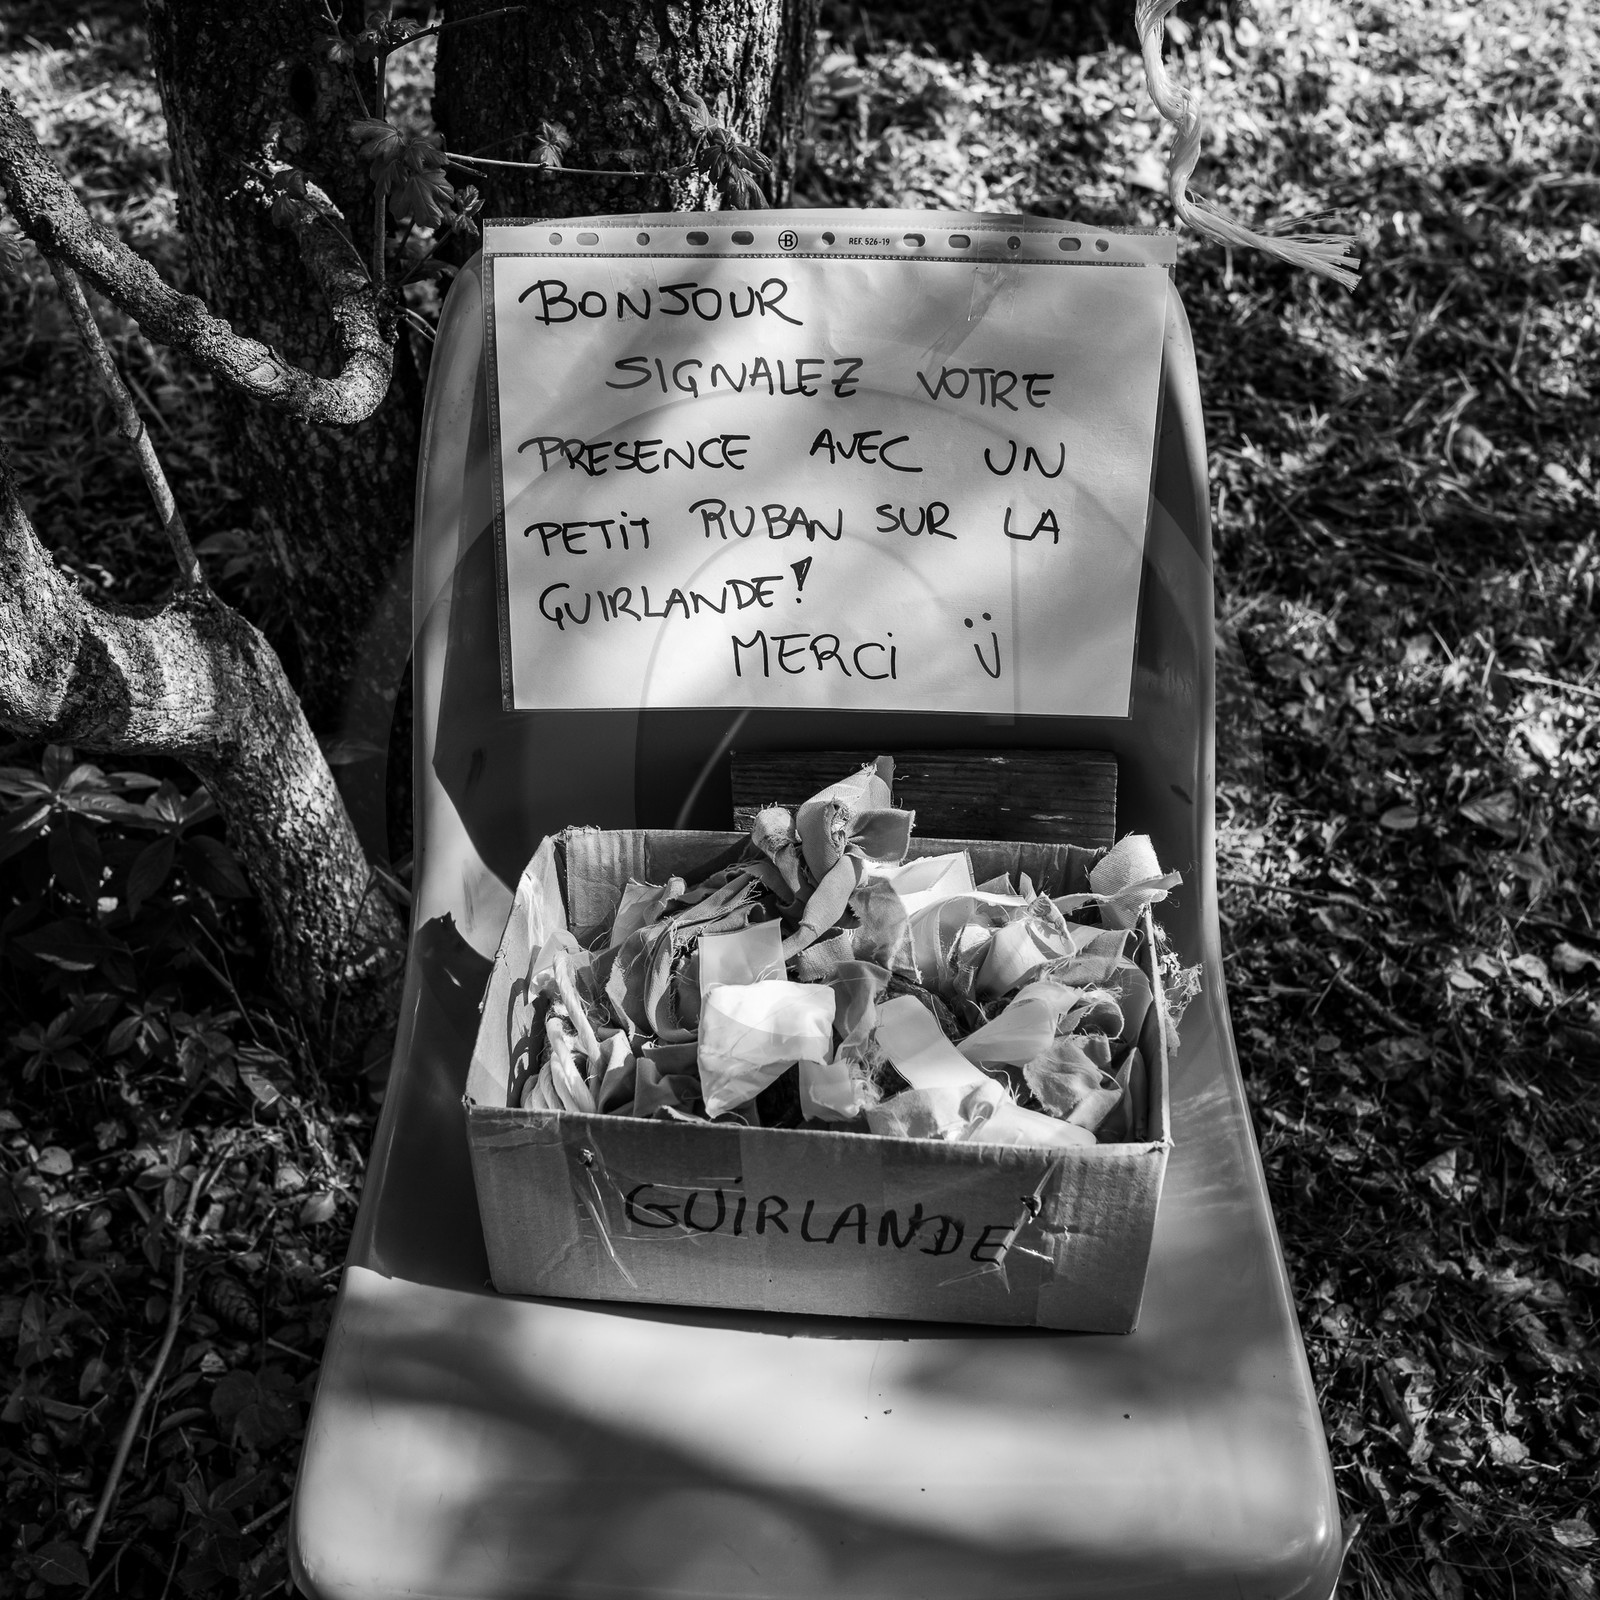 B REF. 526-19
BONJOUR
SIGNALEZ VOTRE
PRESENCE AVEC UN
PETiT RUBAN SUR LA
GUIRLANDE!
MERCi Ü
GUiRLANDE